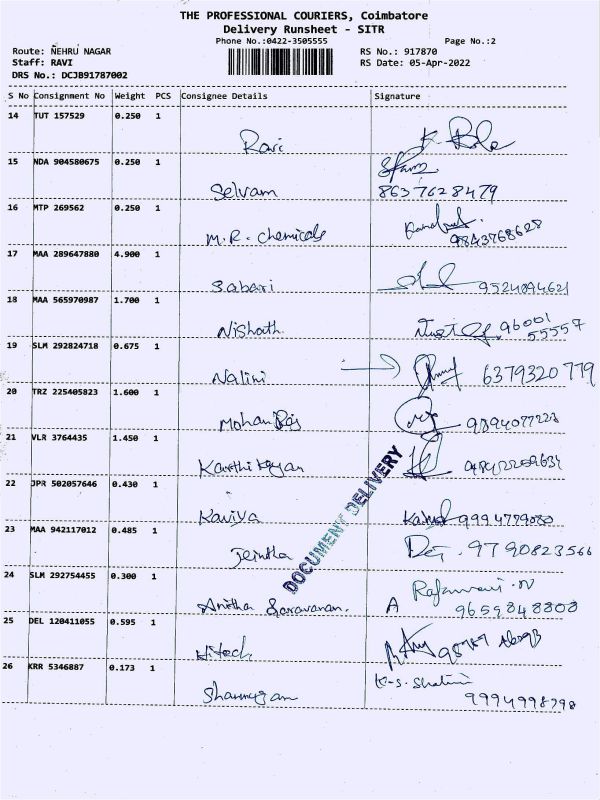 THE PROFESSIONAL COURIERS, Coimbatore
Delivery Runsheet - SITR
Phone No.:0422-3505555
Page No.:2
Route: NEHRU NAGAR
RS No.: 917870
Staff: RAVI
RS Date: 05-Apr-2022
DRS No.: DCJB91787002
S No Consignment No Weight PCS Consignee Details Signature
14 TUT 157529 0.250 1
Ravi
15 NDA 904580675 0.250 1
Selvam 8637628479
16 MTP 269562 0.250 1
M.R. chemicals 9843768628
17 MAA 289647880 4.900 1
Sabari 9524094621
18 MAA 565970987 1.700 1
Nishath 96001
55557
19 SLM 292824718 0.675 1
Nalini 6379320779
20 TRZ 225405823 1.600 1
Mohan Raj
21 VLR 3764435 1.450 1
Karthikeyan
22 JPR 502057646 0.430 1
Kaviya
23 MAA 942117012 0.485 1
9790823566
24 SLM 292754455 0.300 1
Anitha Saravanan. A 9659848808
25 DEL 120411055 0.595 1
Hitech
26 KRR 5346887 0.173 1
K.S. Shalini
Shanmugan 9994998798
DOCUMENT DELIVERY